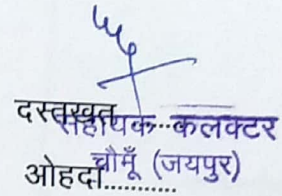 दस्तखत......
सहायक कलक्टर
चौमूँ (जयपुर)
ओहदा..........